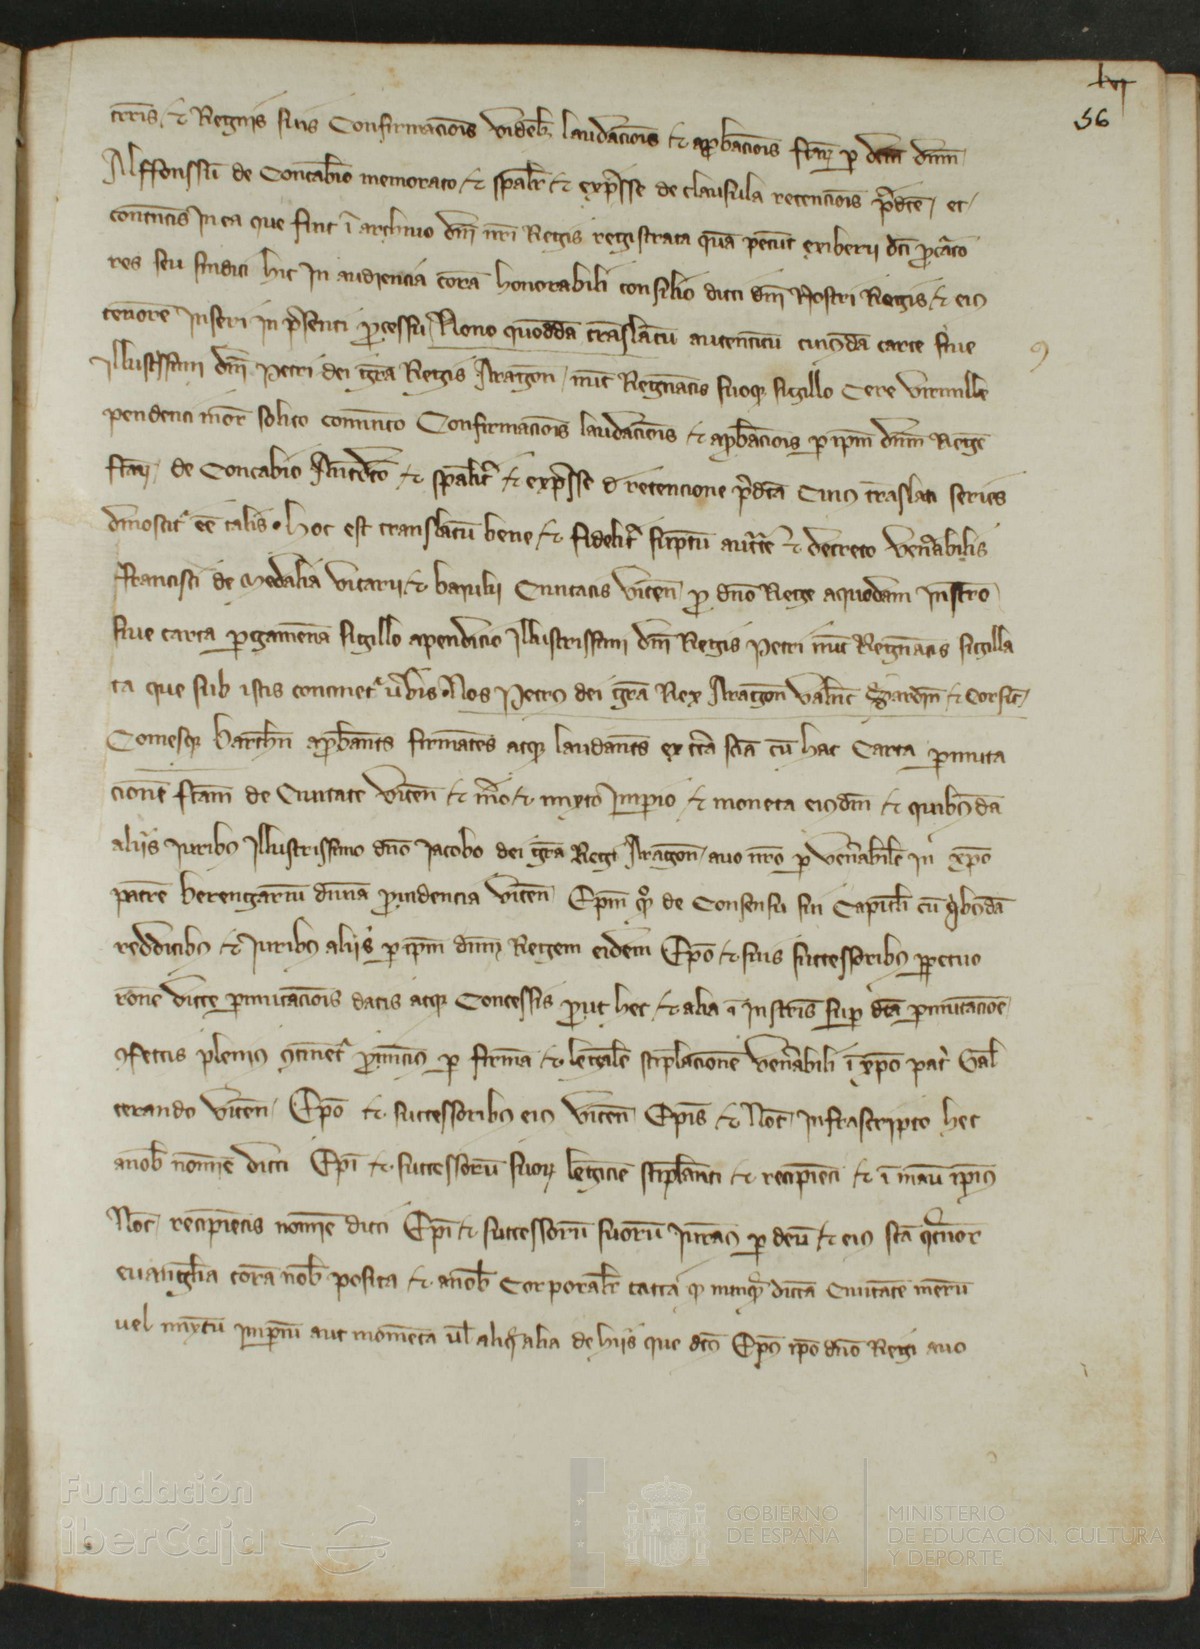 lvj
56
terris et Regnis suis Confirmacionis videlicet laudacionis et aprobacionis factarum per dominum
Alffonssum de Concambio memorato et specialiter et expresse de clausula retencionis predicte et
contentis in ea que sunt in archivo domini nostri Regis registrata quam petunt exiberii dicti procurato
res seu sindici hic in audiencia coram honorabili consilio dicti domini Nostri Regis et eius
tenorem inseri in presenti processu Nono quoddam translatum autenticum cuiusdam carte sive
Illustrissimi domini Petri dei gratia Regis Aragonum nunc Regnantis suoque sigillo Cere virmille
pendenti more solito comunito Confirmacionis laudacionis et aprobacionis per ipsum dominum Regem
factarum de Concabio Antedicto et specialiter et expresse de retencione predicta Cuius translati series
dinoscitur esse talis Hoc est translatum bene et fideliter sumptum auctoritate et decreto venerabilis
Francisci de Medalia vicarii et baiulii Civitatis vicensis pro domino Rege a quodam instrumento
sive carta pergamenea sigillo apendicio Illustrissimi domini Regis Petri nunc Regnantis sigilla
ta que sub istis continetur verbis Nos Petrus dei gratia Rex Aragonum Valentie Sardinie et Corsice
Comesque barchinone aprobantes firmantes atque laudantes ex certa sciencia cum hac Carta permuta
cionem factam de Civitate vicensi et mero et mixto Imperio et moneta eiusdem et quibusdam
aliis iuribus Illustrissimo domino Jacobo dei gratia Regi Aragonum avo nostro per venerabilem in Christo
patrem berengarium divina providencia vicensem Episcopum de Consensu sui Capituli cum quibusdam
reddicibus et iuribus aliis per ipsum dominum Regem eidem Episcopo et suis successoribus perpetuo
racione dicte permutacionis datis atque Concessis prout hec et alia in instrumentis super dicta permutacione
confectis plenius continetur promittimus per firmam et legalem stipulacionem venerabili in Christo patri Gal
cerando vicensi Episcopo et successoribus eius vicensis Episcopis et Notario infrascripto hec
a nobis nomine dicti Episcopi et successorum suorum legitime stipulanti et recipienti et in manu ipsius
Notarii recipientis nomine dicti Episcopi et successorum suorum iuramus per deum et eius sancta quatuor
evangelia coram nobis posita et a nobis Corporaliter tacta quod nunquam dictam Civitatem merum
vel mixtum imperium aut monetam vel aliqua alia de hiis que dictus Episcopus ipso domino Regi avo